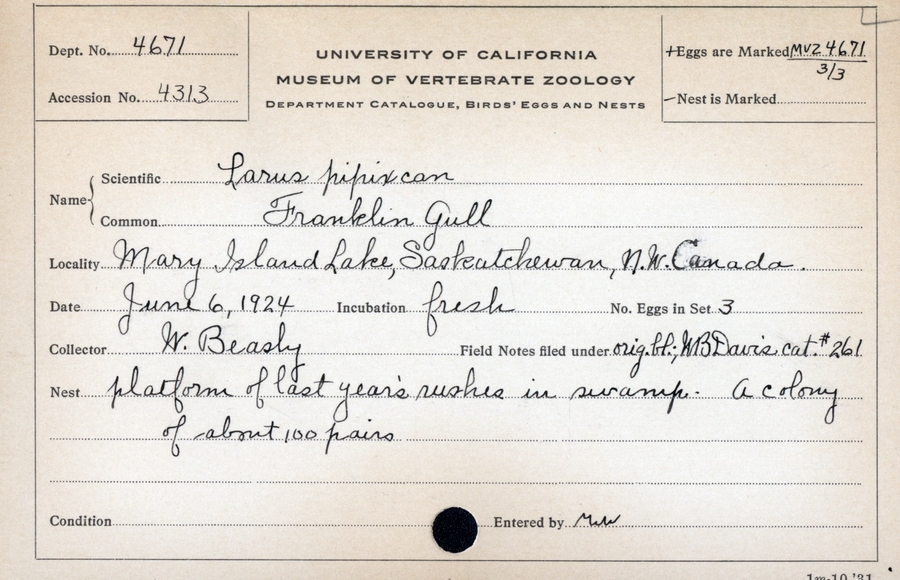 Dept. No. 4671
Accession No. 4313
UNIVERSITY OF CALIFORNIA
MUSEUM OF VERTEBRATE ZOOLOGY
DEPARTMENT CATALOGUE, BIRDS' EGGS AND NESTS
+Eggs are Marked MVZ 4671
3/3
—Nest is Marked
Name
Scientific Larus pipixcan
Common Franklin Gull
Locality Mary Island Lake, Saskatchewan, N.W. Canada.
Date June 6, 1924 Incubation fresh No. Eggs in Set 3
Collector W. Beasly Field Notes filed under orig. bl.; WB Davis cat. #261
Nest platform of last year's rushes in swamp. A colony
of about 100 pairs
Condition Entered by
1m-10,'31